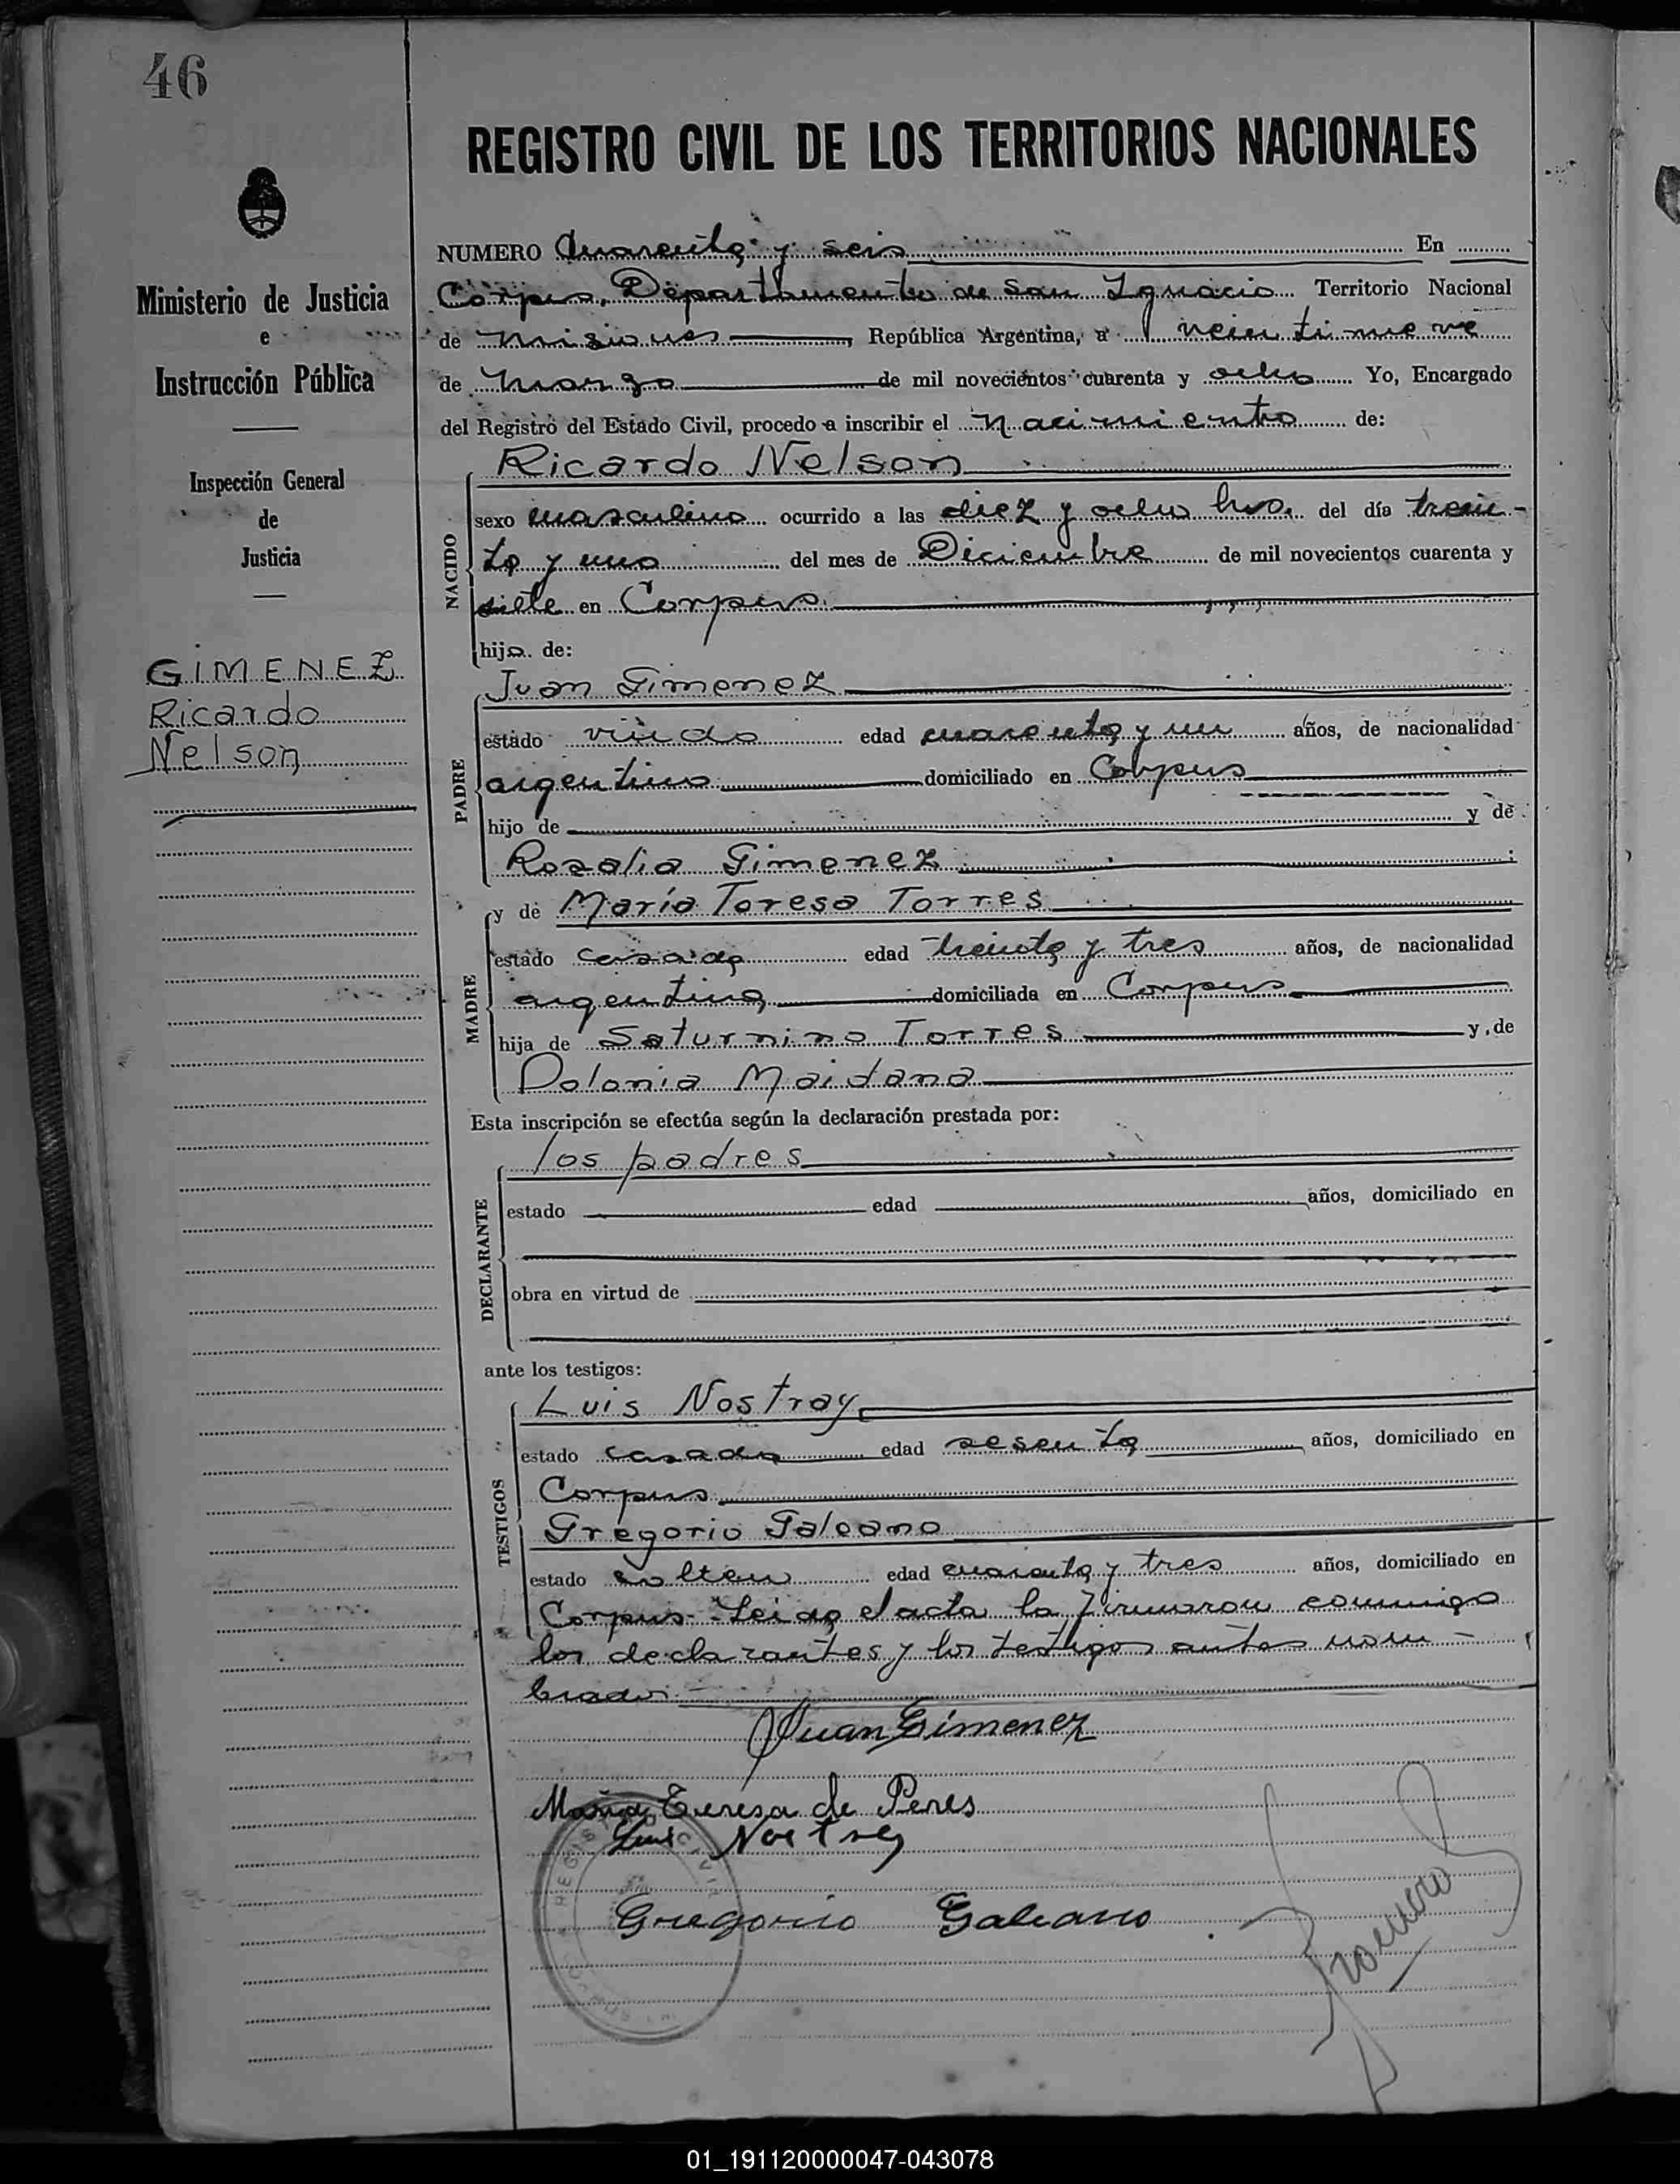 46
REGISTRO CIVIL DE LOS TERRITORIOS NACIONALES
Ministerio de Justicia
e
Instrucción Pública
Inspección General
de
Justicia
GIMENEZ
Ricardo
Nelson
NUMERO Cuarenta y seis En
Corpus, Departamento de San Ignacio Territorio Nacional
de Misiones República Argentina, a veintinueve
de Marzo de mil novecientos cuarenta y ocho Yo, Encargado
del Registro del Estado Civil, procedo a inscribir el nacimiento de:
Ricardo Nelson
NACIDO
sexo masculino ocurrido a las diez y ocho hrs. del día trein-
ta y uno del mes de Diciembre de mil novecientos cuarenta y
siete en Corpus
hijo de:
Juan Gimenez
PADRE
estado viudo edad cuarenta y un años, de nacionalidad
argentino domiciliado en Corpus
hijo de y de
Rosalia Gimenez
MADRE
y de María Teresa Torres
estado casada edad treinta y tres años, de nacionalidad
argentina domiciliada en Corpus
hija de Saturnino Torres y de
Polonia Maidana
Esta inscripción se efectúa según la declaración prestada por:
los padres
DECLARANTE
estado edad años, domiciliado en
obra en virtud de
ante los testigos:
Luis Nostray
TESTIGOS
estado casado edad sesenta años, domiciliado en
Corpus
Gregorio Galeano
estado soltero edad cuarenta y tres años, domiciliado en
Corpus- Leida el acta la firmaron conmigo
los declarantes y los testigos antes nom-
brados
Juan Gimenez
Maria Teresa de Peres
Luis Nostrey
Gregorio Galeano
REGISTRO CIVIL
01_191120000047-043078